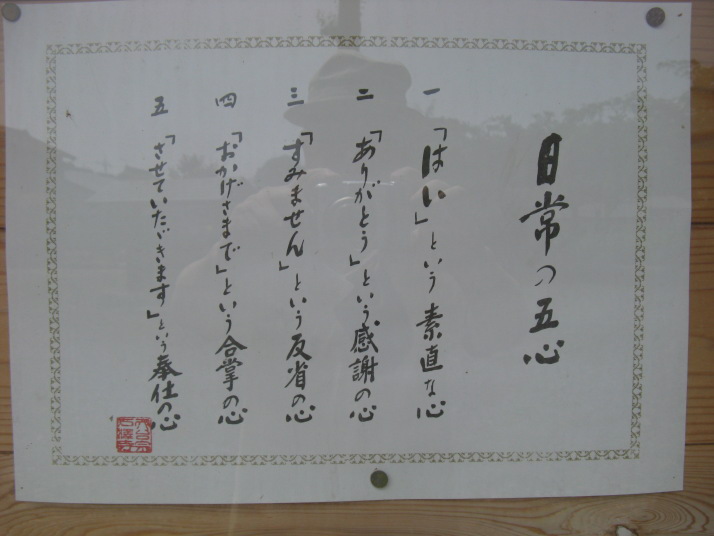 日常の五心
一 「はい」という素直な心
二 「ありがとう」という感謝の心
三 「すみません」という反省の心
四 「おかげさまで」という合掌の心
五 「させていただきます」という奉仕の心